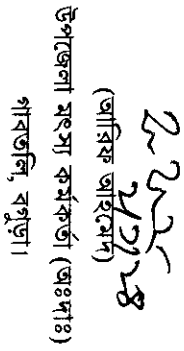 (আরিফ আহমেদ)
উপজেলা মৎস্য কর্মকর্তা (অঃদাঃ)
গাবতলি, বগুড়া।